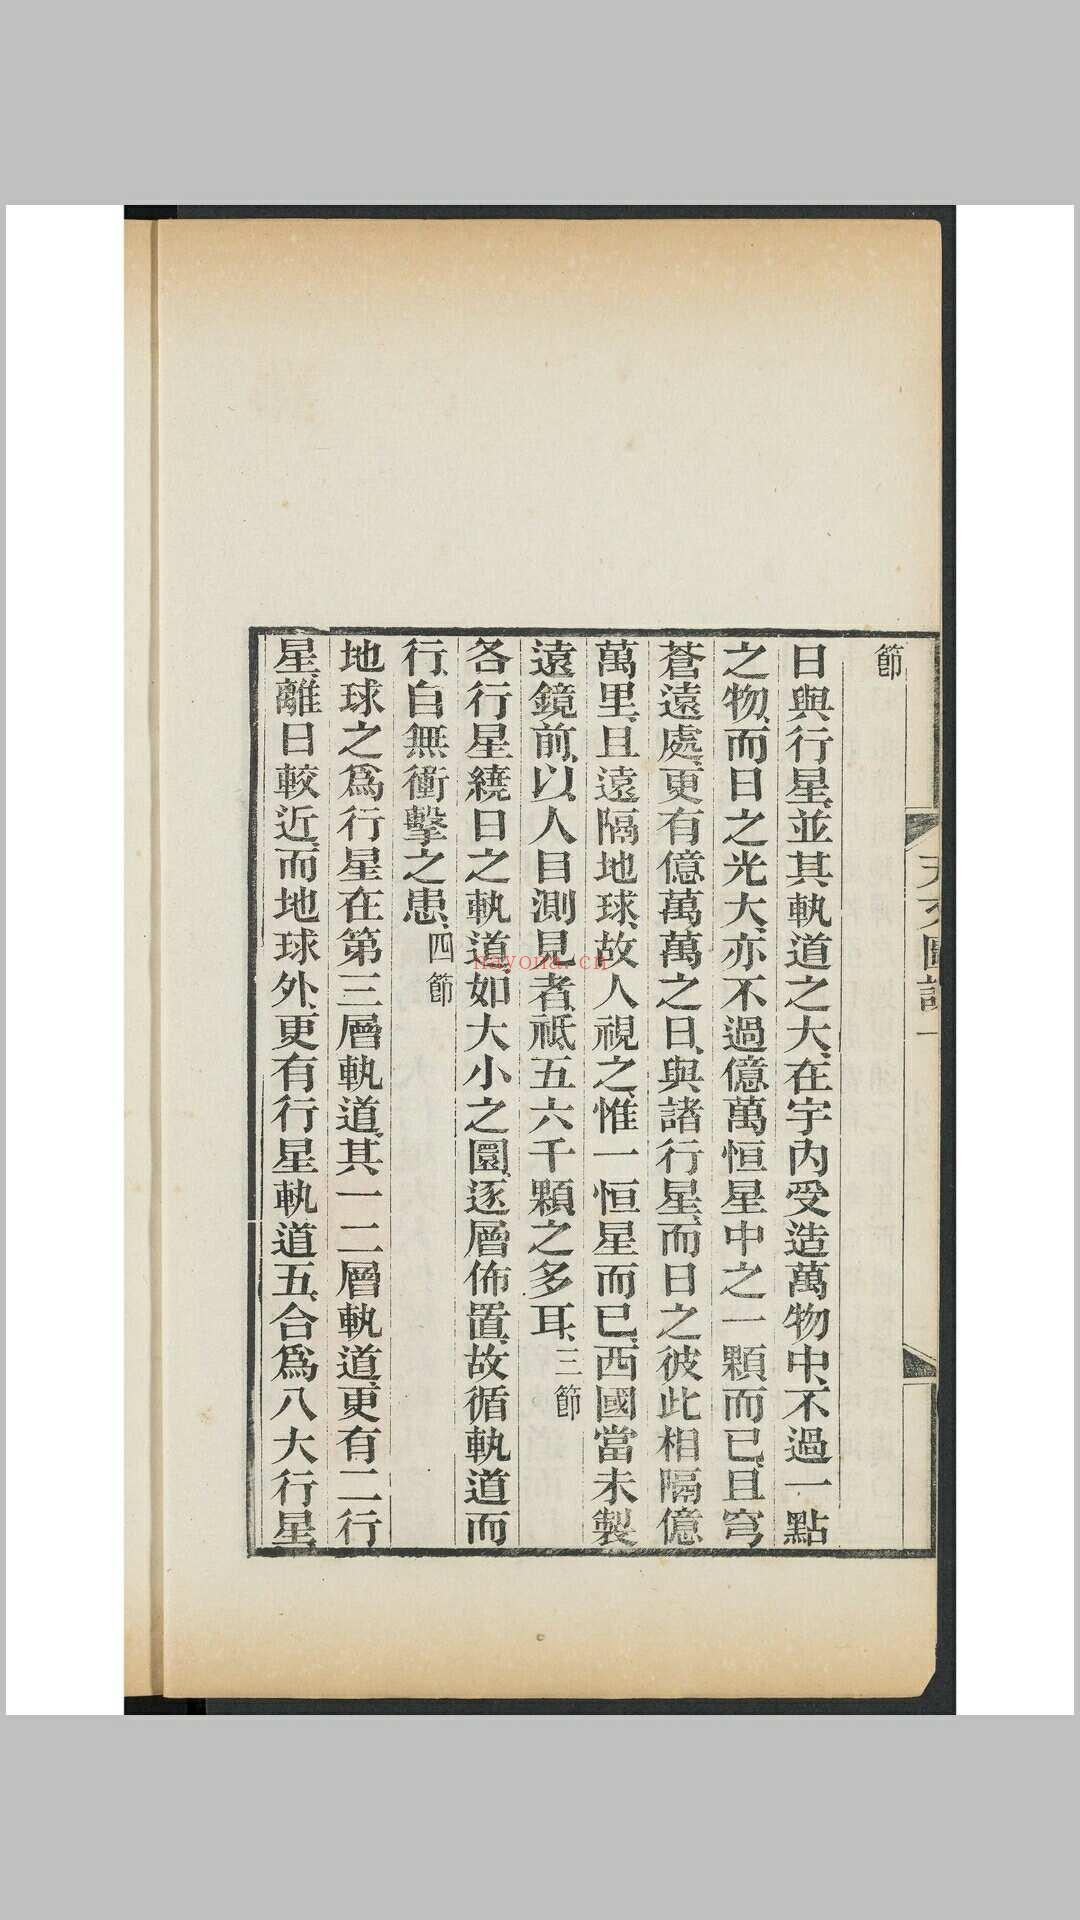 天文圖說一
節
日與行星、並其軌道之大、在宇內受造萬物中、不過一點
之物、而日之光大、亦不過億萬恒星中之一顆而已、且穹
蒼遠處、更有億萬萬之日、與諸行星、而日之彼此相隔億
萬里、且遠隔地球、故人視之、惟一恒星而已、西國當未製
遠鏡前、以人目測見者、祗五六千顆之多耳、三節
各行星繞日之軌道、如大小之圜、逐層佈置、故循軌道而
行、自無衝擊之患、四節
地球之爲行星在第三層軌道、其一二層軌道、更有二行
星、離日較近、而地球外、更有行星軌道五、合爲八大行星、
nayona.cn